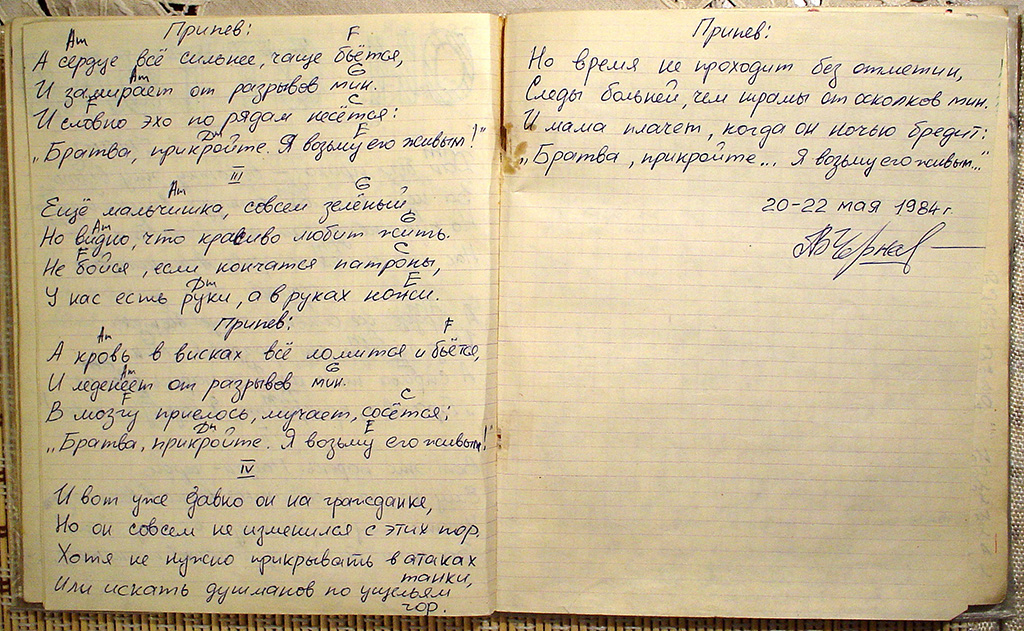 Припев:
Am F
А сердце всё сильнее, чаще бьётся,
Am G
И замирает от разрывов мин.
F C
И словно эхо по рядам несётся:
Dm E
„Братва, прикройте. Я возьму его живым!"
III
Am G
Ещё мальчишка, совсем зелёный,
Am G
Но видно, что красиво любит жить.
F C
Не бойся, если кончатся патроны,
Dm E
У нас есть руки, а в руках ножи.
Припев:
Am F
А кровь в висках всё ломится и бьётся,
Am G
И леденеет от разрывов мин.
F C
В мозгу приелось, мучает, сосётся:
Dm E
„Братва, прикройте. Я возьму его живым!"
IV
И вот уже давно он на гражданке,
Но он совсем не изменился с этих пор.
Хотя не нужно прикрывать в атаках
танки,
Или искать душманов по ущельям
гор.
Припев:
Но время не проходит без отметин,
Следы больней, чем шрамы от осколков мин.
И мама плачет, когда он ночью бредит:
„Братва, прикройте... Я возьму его живым..."
20-22 мая 1984 г.